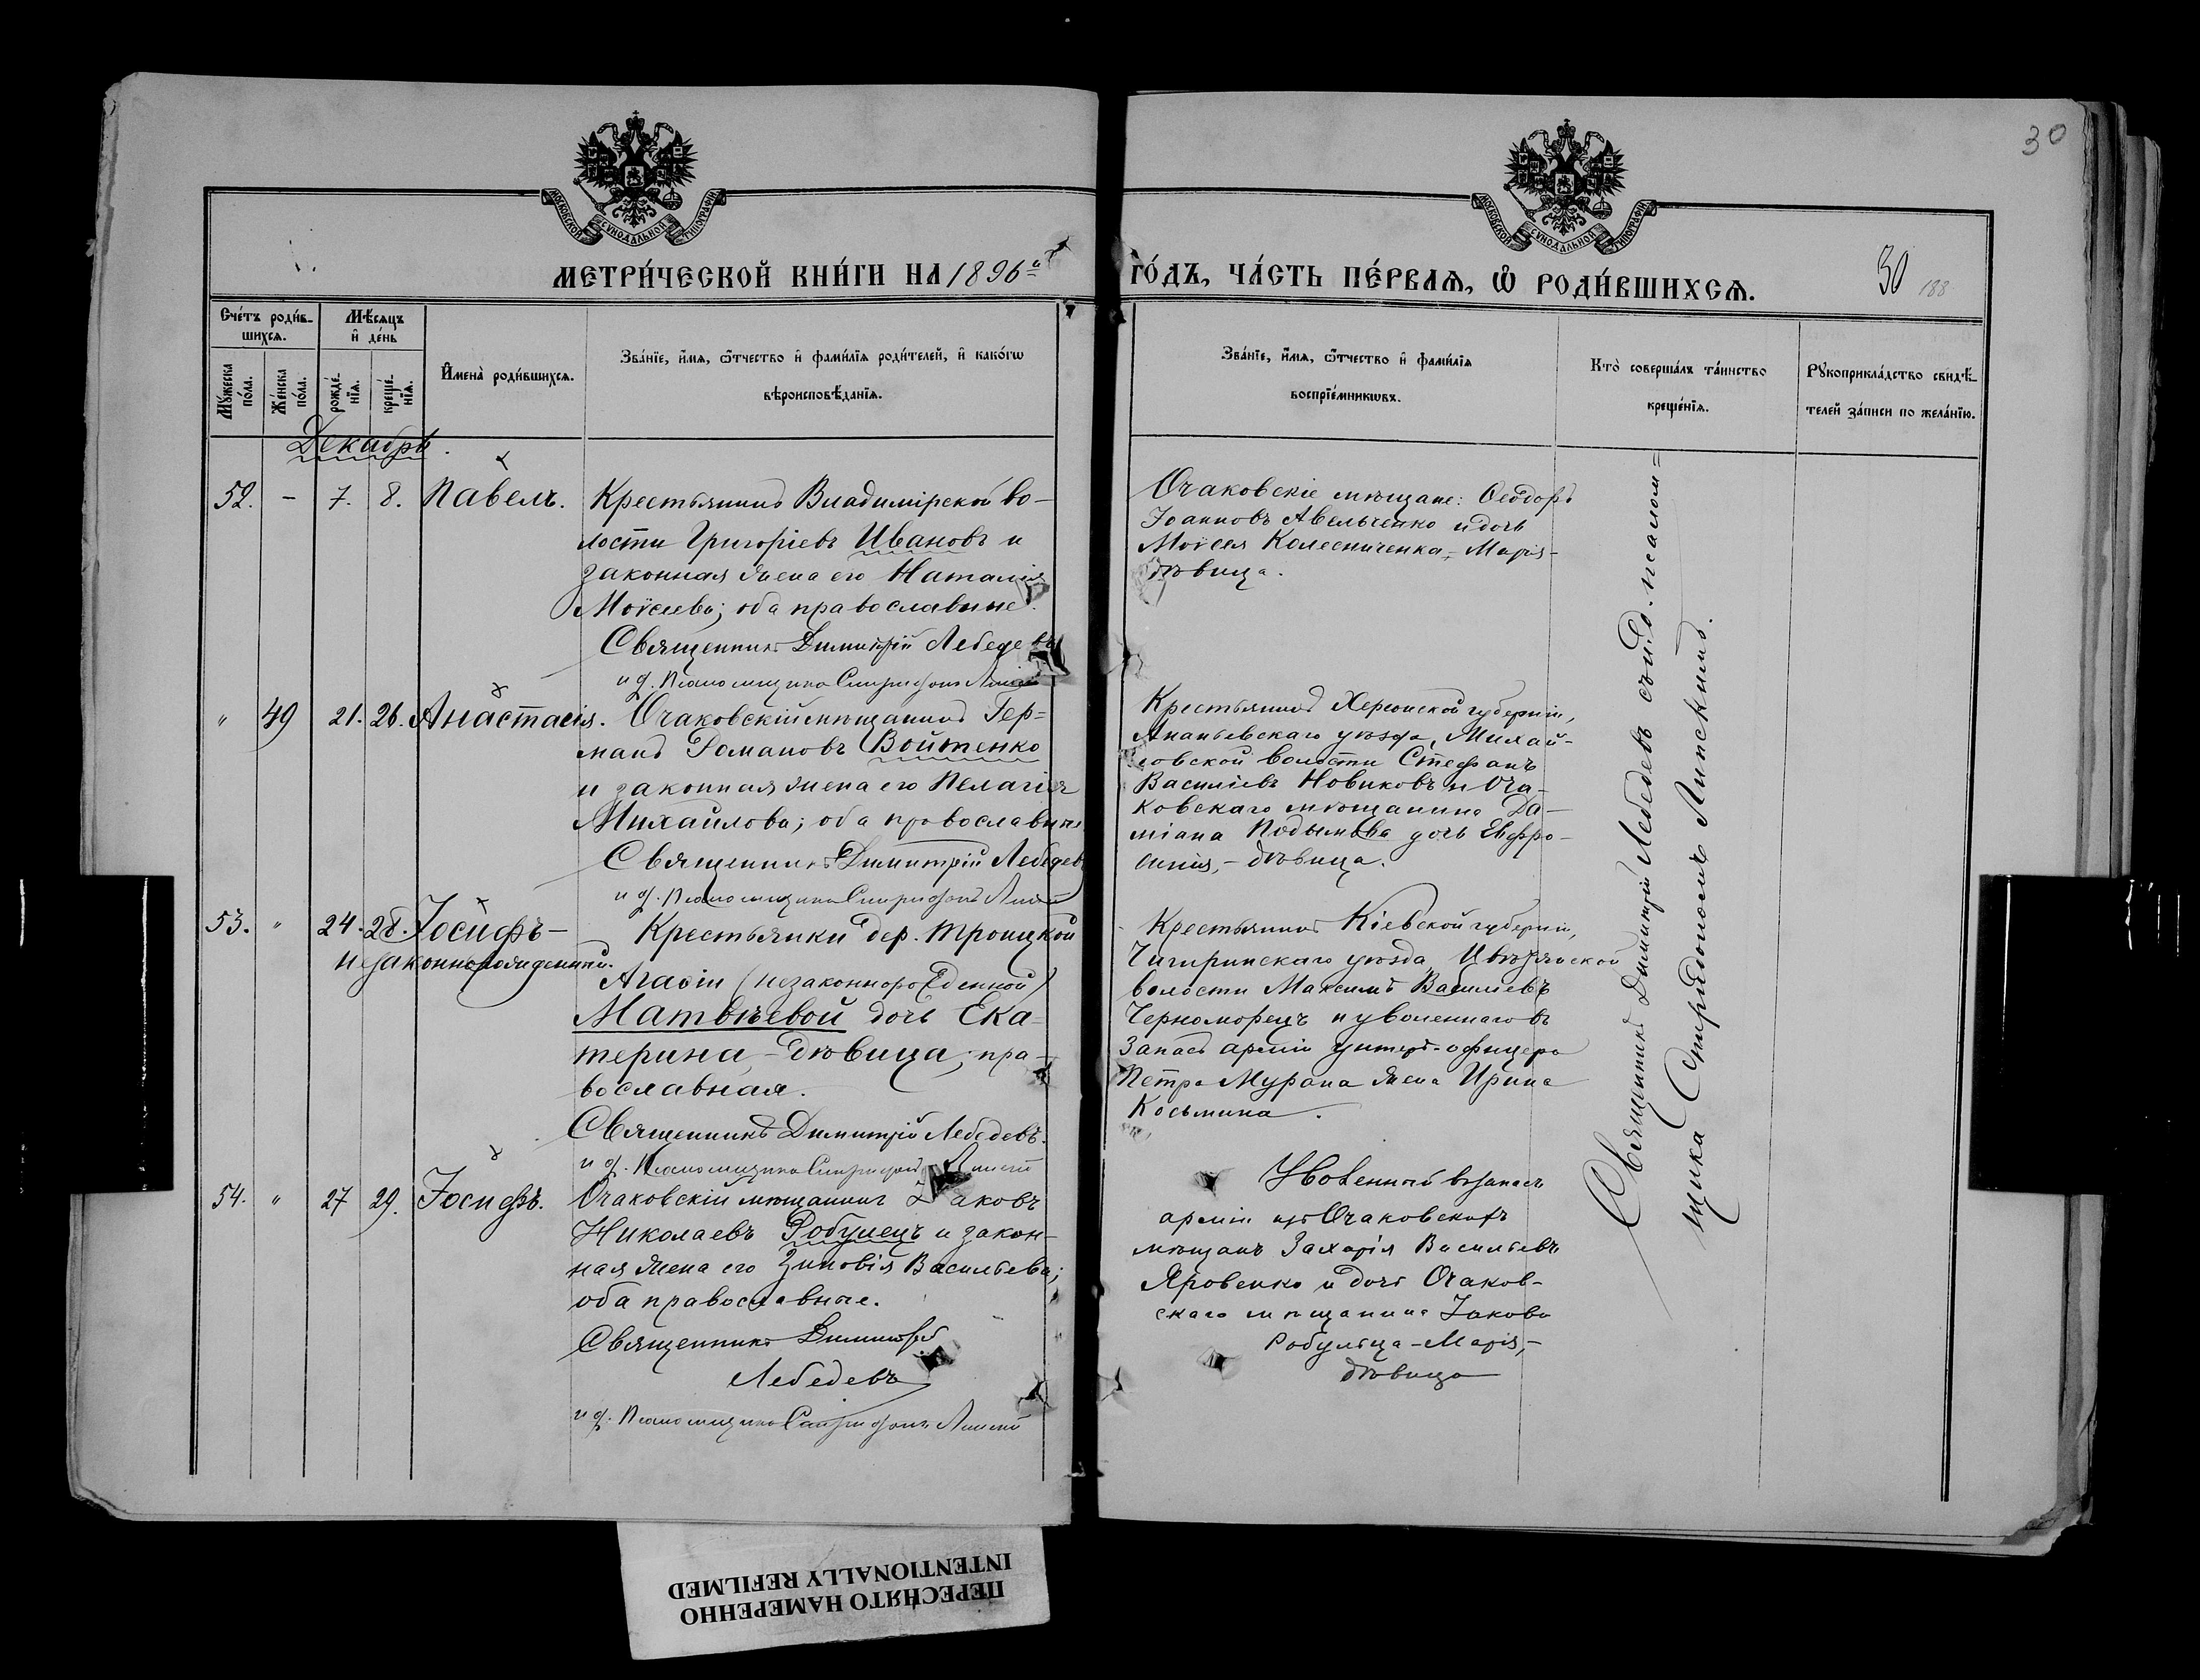 30
МОСКОВСКОЙ СУНОДАЛЬНОЙ ТИПОГРАФІИ
МОСКОВСКОЙ СУНОДАЛЬНОЙ ТИПОГРАФІИ
МЕТРИ́ЧЕСКОЙ КНИ́ГИ НА 1896й
ГО́ДЪ, ЧА́СТЬ ПЕ́РВАѦ, Ѽ РОДИ́ВШИХСѦ.
30 188
Сче́тъ роди́в-
шихсѧ.
Мѣ́сѧцъ
и҆ де́нь
Мꙋ́жеска
по́ла.
Же́нска
по́ла.
рожде́-
нїѧ.
креще́-
нїѧ.
И҆мена̀ роди́вшихсѧ.
Зва́нїе, и҆́мѧ, ѻ҆́тчество и҆ фами́лїѧ роди́телей, и҆ како́гѡ
вѣроисповѣ́данїѧ.
Зва́нїе, и҆́мѧ, ѻ҆́тчество и҆ фами́лїѧ
воспрїе́мникѡвъ.
Кто̀ соверша́лъ та́инство
креще́нїѧ.
Рꙋкоприкла́дство свидѣ́-
телей за́писи по жела́нїю.
Декабрь.
52. – 7. 8. Павелъ.
Крестьянинъ Владимірской во-
лости Григоріевъ Ивановъ и
законная жена его Наталія
Моѵсеева; оба православные.
Священникъ Димитрій Лебедевъ
и д. Псаломщика Спиридонъ
Очаковскіе мѣщане: Ѳеодоръ
Іоанновъ Авельченко и дочь
Моѵсея Колесниченка, – Марія –
дѣвица.
" 49 21. 26. Анастасія.
Очаковскій мѣщанинъ Гер-
манъ Романовъ Войтенко
и законная жена его Пелагія
Михаилова; оба православные
Священникъ Димитрій Лебедевъ
и д. Псаломщика Спиридонъ
Крестьянинъ Херсонской губерніи,
Ананьевскаго уѣзда, Михай-
ловской волости Стефанъ
Василіевъ Новиковъ и Оча-
ковскаго мѣщанина Да-
міана дочь Евфро-
синія, – дѣвица.
53. " 24. 28. Іосифъ –
незаконнорожденный.
Крестьянки дер. Троицкой
Агафіи (незаконнорожденной)
Матвѣевой дочь Ека-
терина, – дѣвица; пра-
вославная.
Священникъ Димитрій Лебедевъ.
и д. Псаломщика Спиридонъ
Крестьянинъ Кіевской губерніи,
Чигиринскаго уѣзда,
волости Максимъ Василіевъ
Черноморецъ и уволеннаго въ
запасъ арміи унтеръ-офицера
Петра Мурана жена Ирина
Косьмина.
54. " 27 29. Іосифъ.
Очаковскій мѣщанинъ Іаковъ
Николаевъ Робулецъ и закон-
ная жена его Зиновія Васильева;
оба православные.
Священникъ Димитрій
Лебедевъ
и д. Псаломщика Спиридонъ
Уволенный въ запасъ
арміи изъ Очаковскихъ
мѣщанъ Захарія Васильевъ
Яровенко и дочь Очаков-
скаго мѣщанина Іакова
Робульца – Марія, –
дѣвица
Священникъ Димитрій Лебедевъ съ и. д. псалом=
щика Спиридономъ Липскимъ.
ПЕРЕСНЯТО НАМЕРЕННО
INTENTIONALLY REFILMED